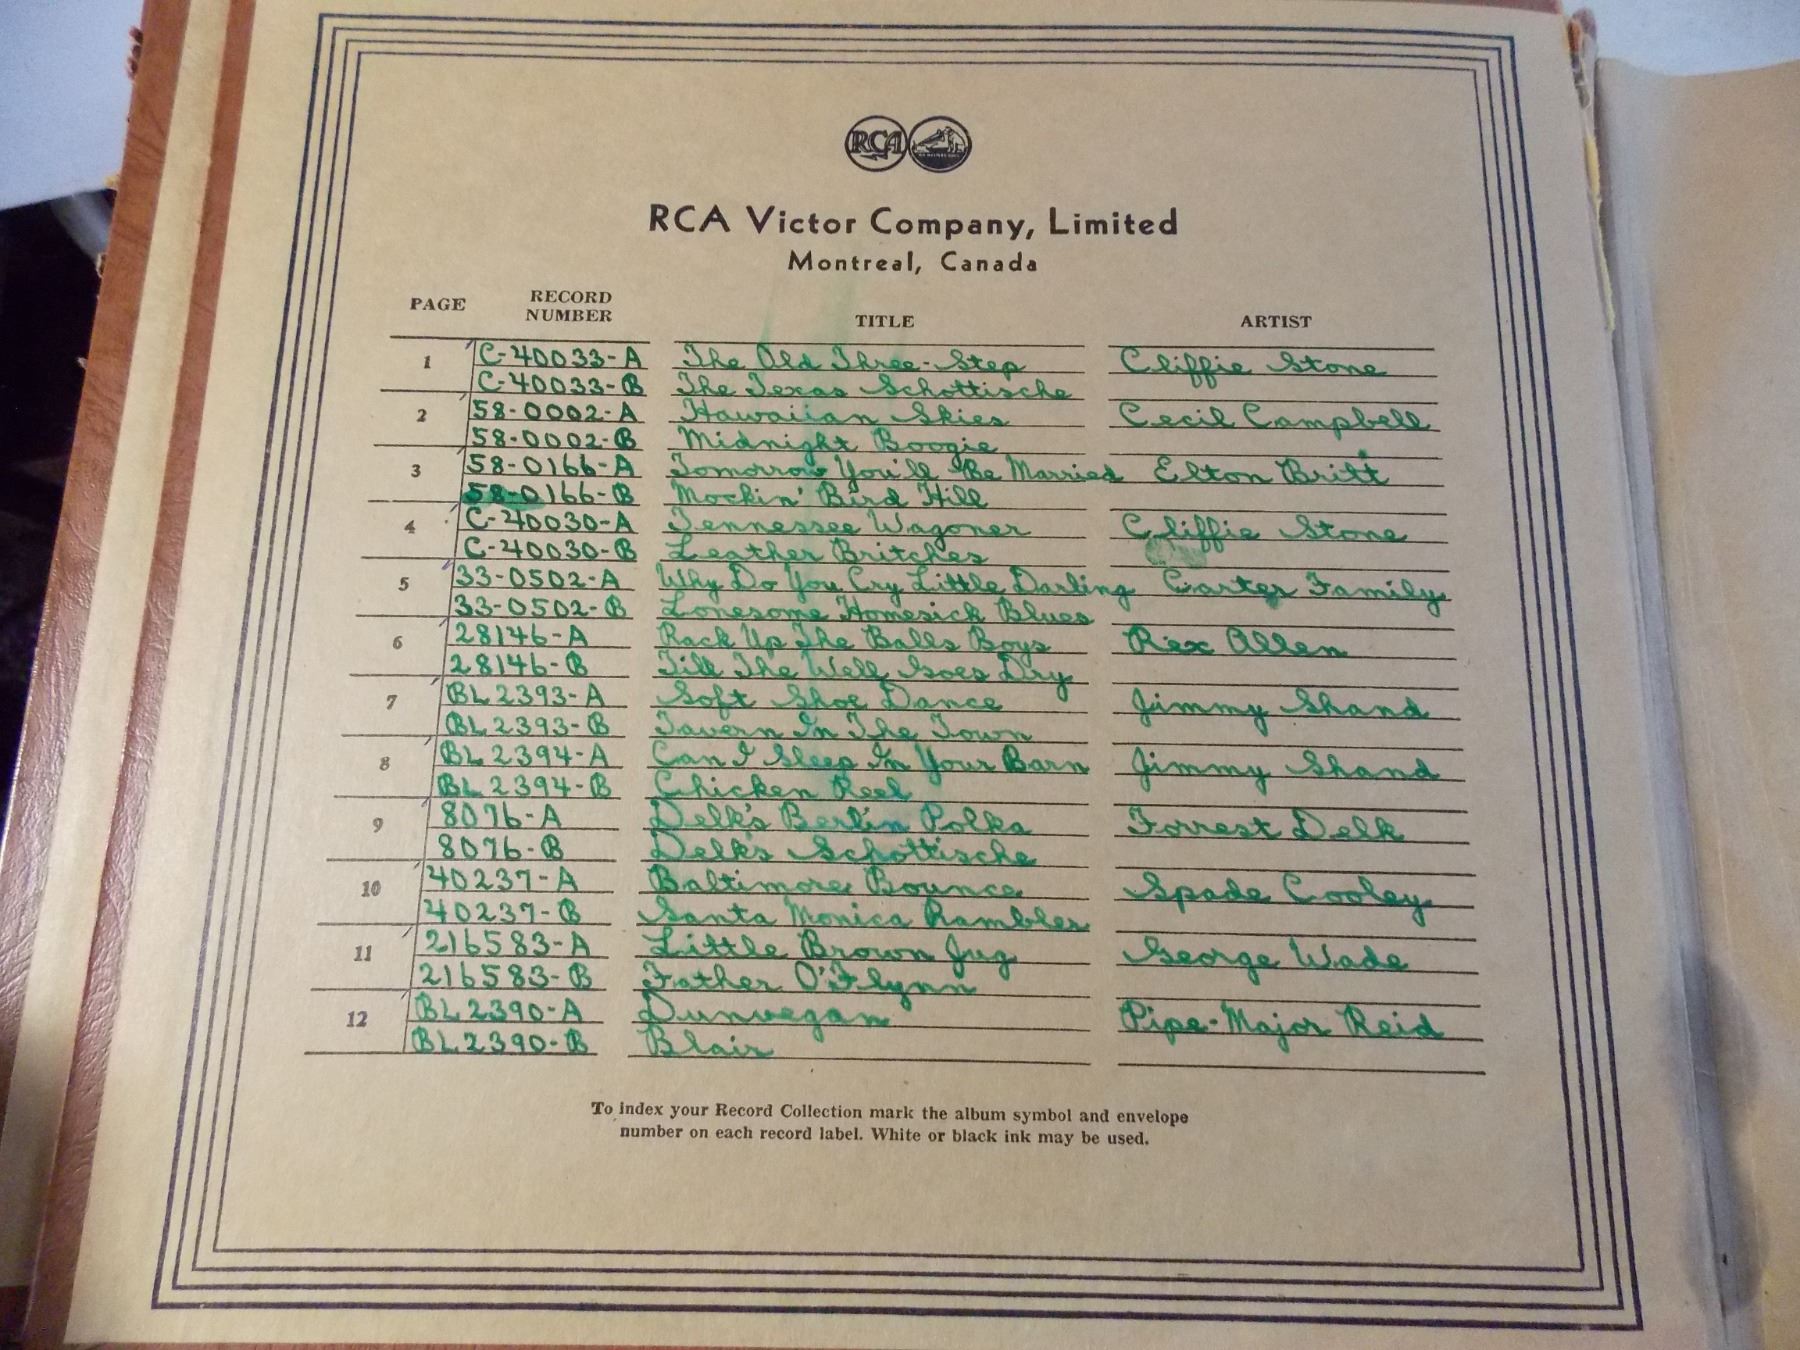 RCA
RCA Victor Company, Limited
Montreal, Canada
PAGE RECORD NUMBER TITLE ARTIST
1 C-40033-A The Old Three-Step Cliffie Stone
C-40033-B The Texas Schottische
2 58-0002-A Hawaiian Skies Cecil Campbell
58-0002-B Midnight Boogie
3 58-0166-A Tomorrow You'll Be Married Elton Britt
58-0166-B Mockin' Bird Hill
4 C-40030-A Tennessee Wagoner Cliffie Stone
C-40030-B Leather Britches
5 33-0502-A Why Do You Cry Little Darling Carter Family
33-0502-B Lonesome Homesick Blues
6 28146-A Rack Up The Balls Boys Rex Allen
28146-B Till The Well Goes Dry
7 BL2393-A Soft Shoe Dance Jimmy Shand
BL2393-B Tavern In The Town
8 BL2394-A Can I Sleep In Your Barn Jimmy Shand
BL2394-B Chicken Reel
9 8076-A Delk's Berlin Polka Forrest Delk
8076-B Delk's Schottische
10 40237-A Baltimore Bounce Spade Cooley
40237-B Santa Monica Rambles
11 216583-A Little Brown Jug George Wade
216583-B Father O'Flynn
12 BL2390-A Dunvegan Pipe-Major Reid
BL2390-B Blair
To index your Record Collection mark the album symbol and envelope
number on each record label. White or black ink may be used.